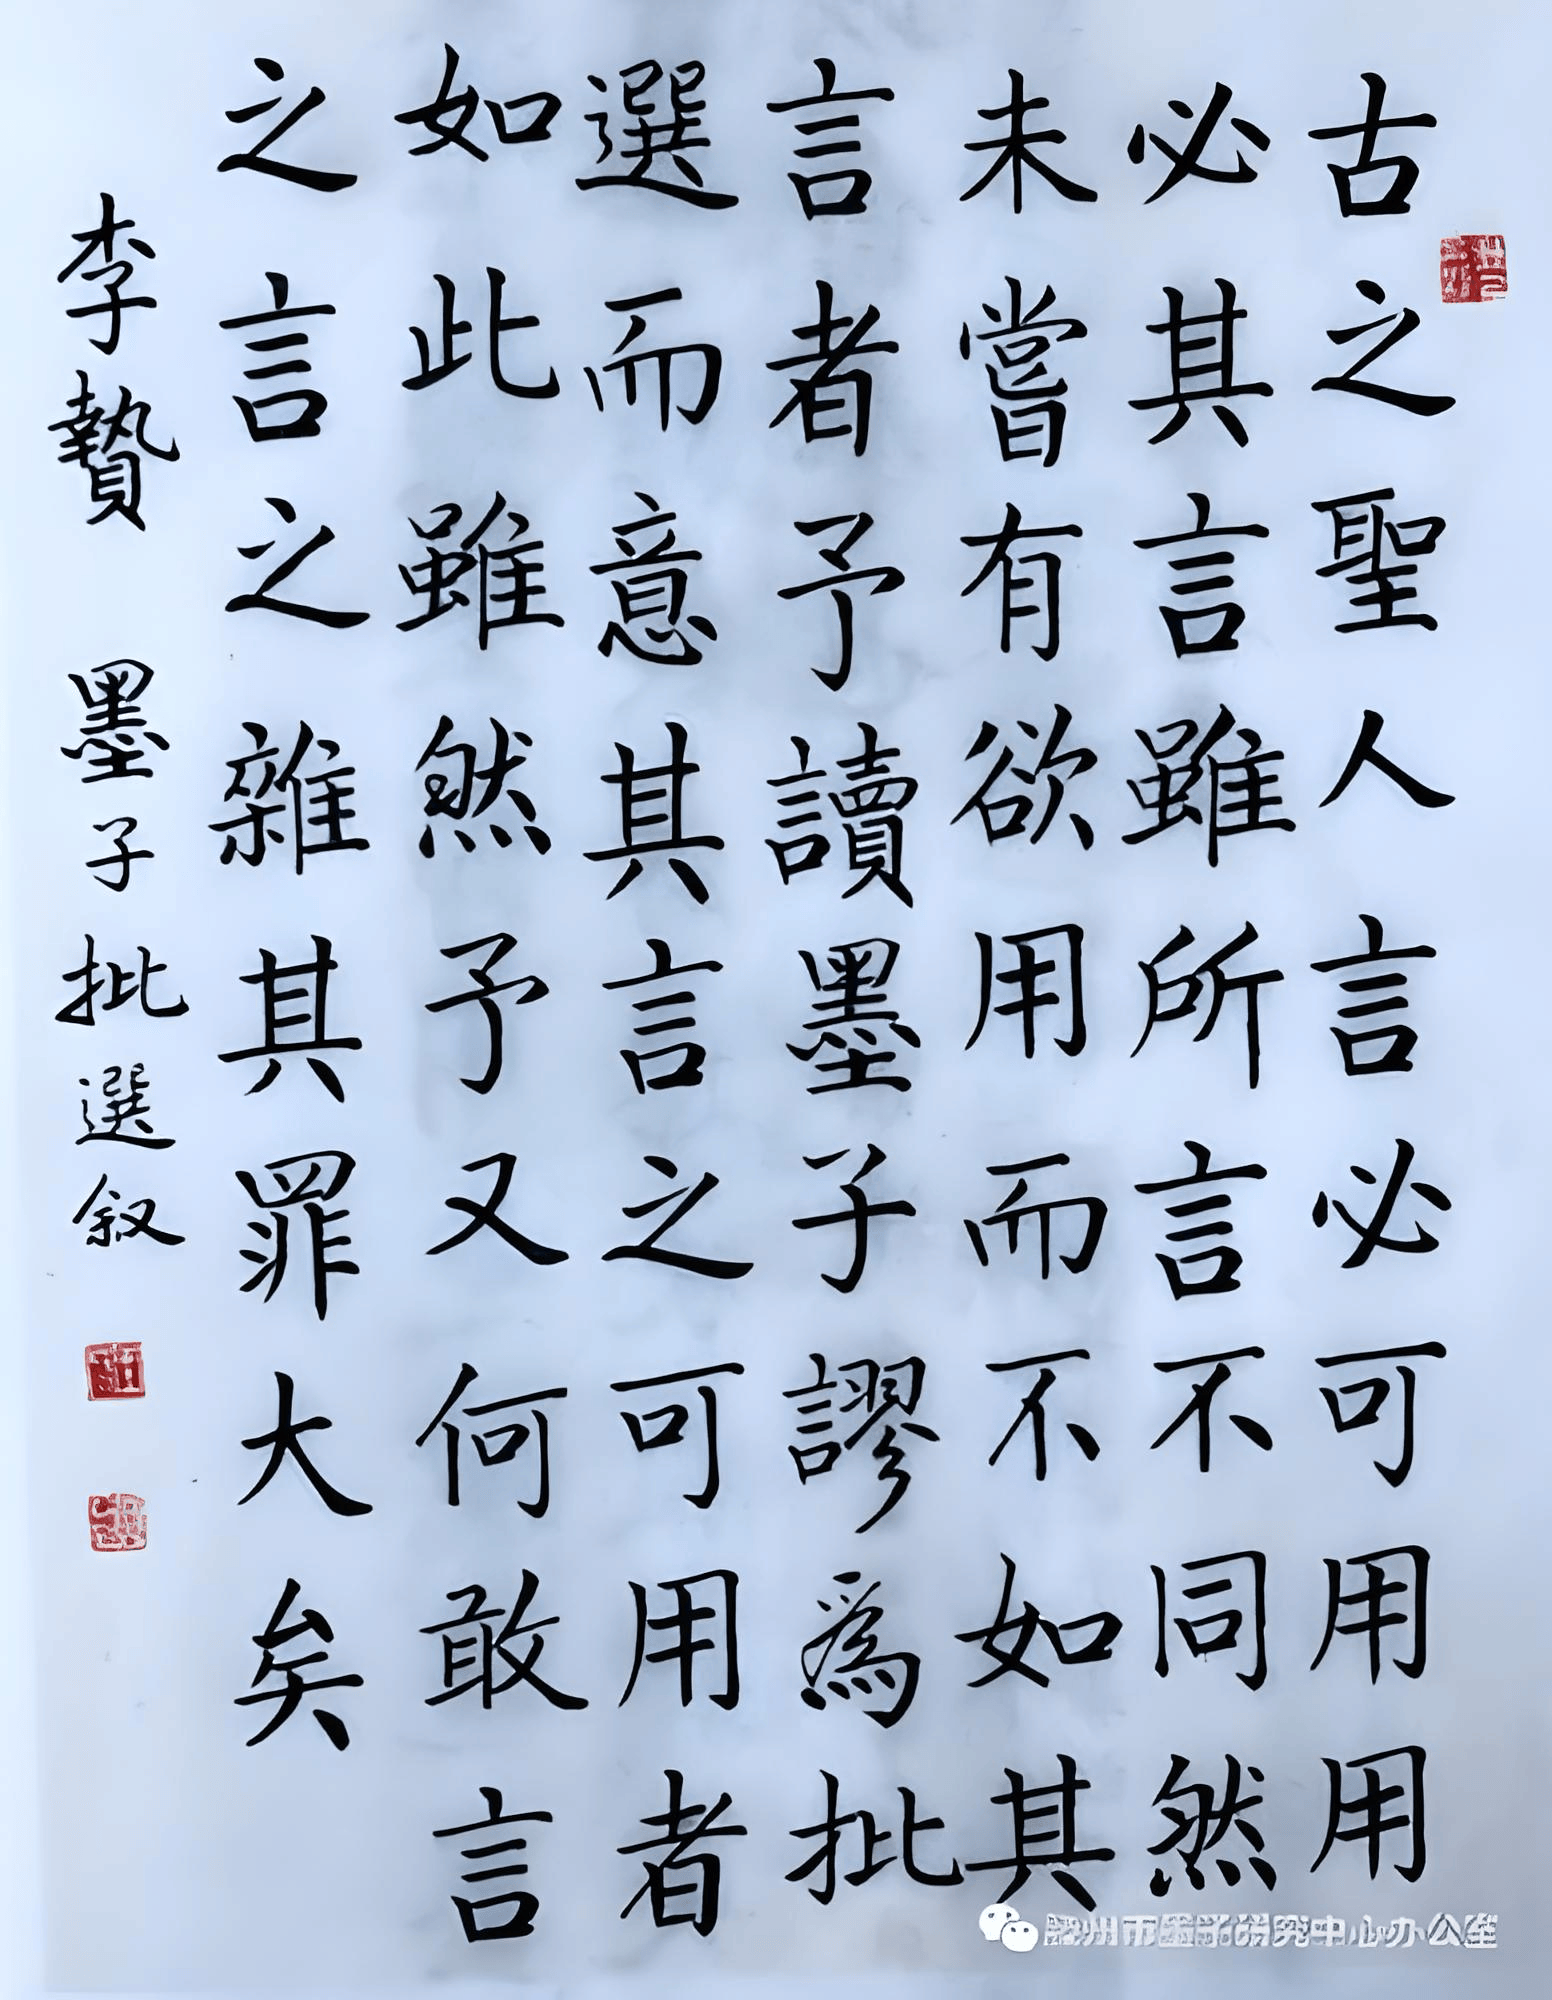 古之聖人言必可用用
必其言雖所言不同然
未嘗有欲用而不如其
言者予讀墨子謬為批
選而意其言之可用者
如此雖然予又何敢言
之言之雜其罪大矣
李贄 墨子批選叙